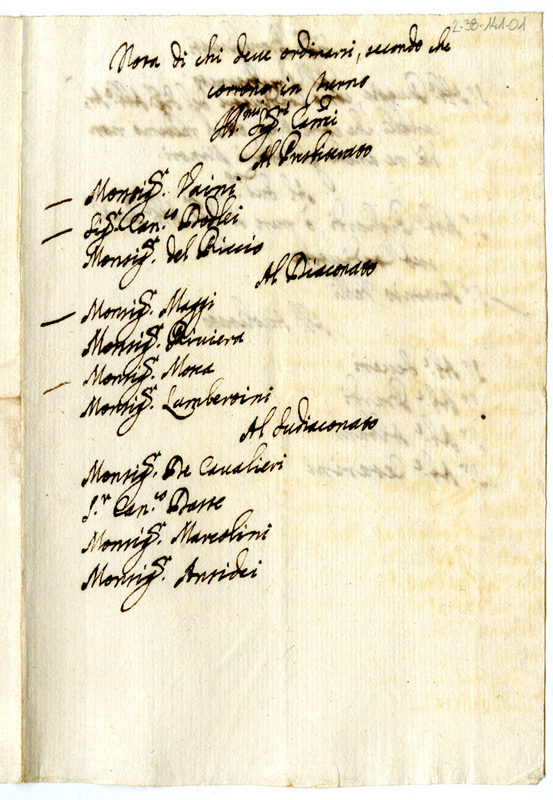 2-38-141-01
Nota di chi deve ordinarsi, secondo che
corrono in turno
Ill.mi Sig.ri Can.ci
Al Presbiterato
— Monsig.r Vaini
— Sig.r Can.co Bodlei
Monsig.r del Riccio
Al Diaconato
— Monsig.r Maggi
Monsig.r Riviera
Monsig.r Mosca
— Monsig.r Lambertini
Al Sudiaconato
Monsig.r De Cavalieri
S.r Can.co Basse
Monsig.r Marcolini
Monsig.r Ansidei